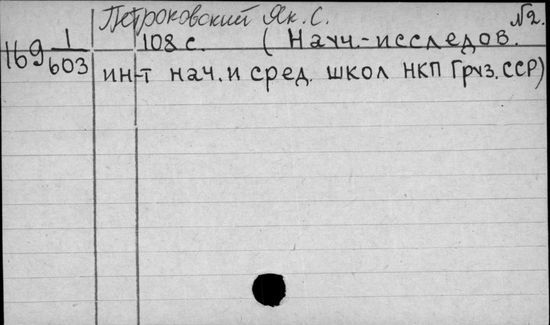 Петроковский Як. С. №2.
169 1/603 108 с. (Науч.-исследов.
ин-т нач. и сред. школ НКП Груз. ССР)